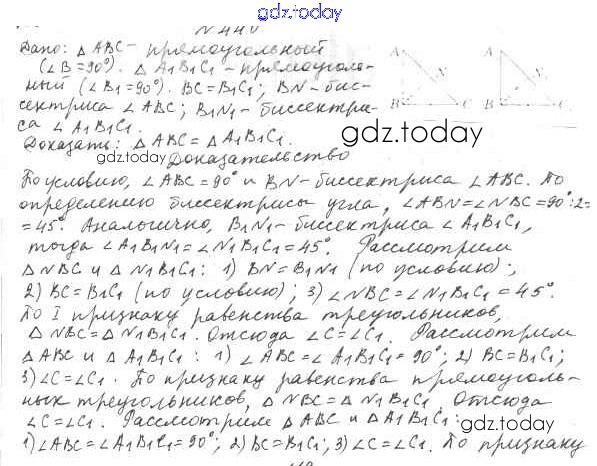 gdz.today
№ 440
Дано: △ ABC - прямоугольный
(∠B=90°). △ A1B1C1 - прямоуголь-
ный (∠B1=90°). BC=B1C1; BN - бис-
сектриса ∠ABC; B1N1 - биссектри-
са ∠ A1B1C1.
Доказать: △ ABC = △ A1B1C1.
gdz.today
gdz.today
Доказательство
A N B C A N B C1
По условию, ∠ABC=90° и BN - биссектриса ∠ABC. По
определению биссектрисы угла, ∠ABN=∠NBC=90°:2=
=45°. Аналогично, B1N1 - биссектриса ∠A1B1C1,
тогда ∠A1B1N1=∠N1B1C1=45°. Рассмотрим
△ NBC и △ N1B1C1: 1) BN=B1N1 (по условию);
2) BC=B1C1 (по условию); 3) ∠NBC=∠N1B1C1=45°.
По I признаку равенства треугольников,
△ NBC=△ N1B1C1. Отсюда ∠C=∠C1. Рассмотрим
△ ABC и △ A1B1C1: 1) ∠ABC=∠A1B1C1=90°; 2) BC=B1C1;
3) ∠C=∠C1. По признаку равенства прямоуголь-
ных треугольников, △ NBC = △ N1B1C1. Отсюда
∠C=∠C1. Рассмотрим △ ABC и △ A1B1C1:
gdz.today
1) ∠ABC=∠A1B1C1=90°; 2) BC=B1C1; 3) ∠C=∠C1. По признаку